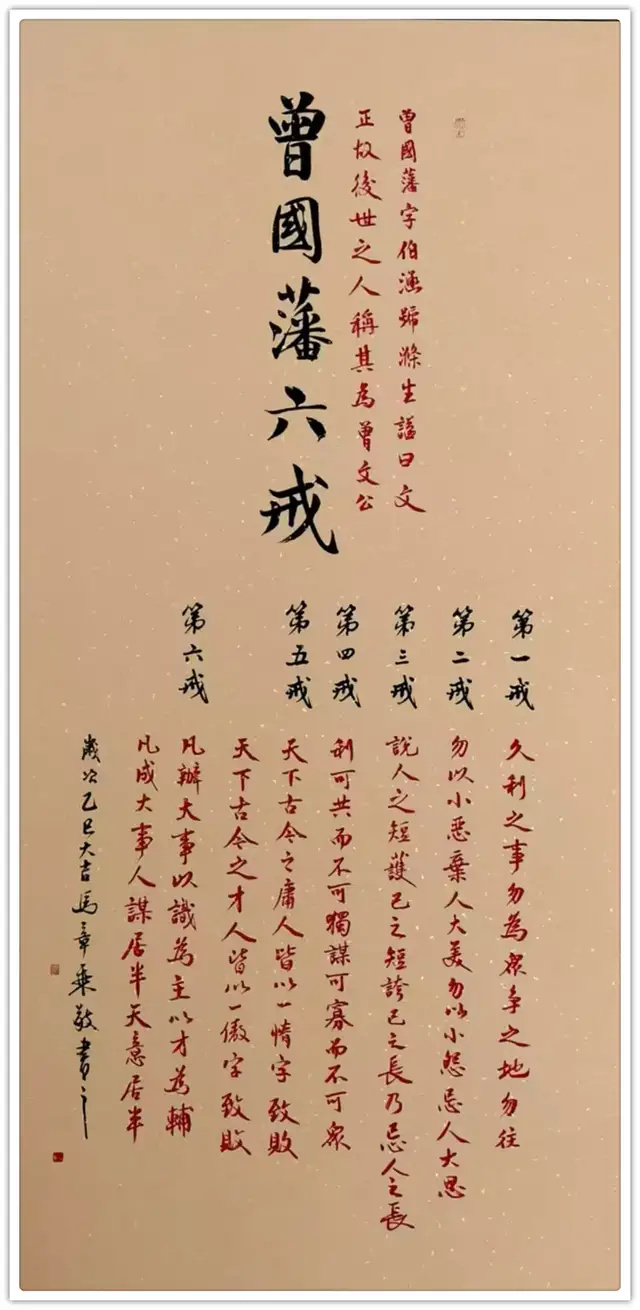 曾國藩字伯涵號滌生諡曰文
正故後世之人稱其為曾文公
曾國藩六戒
第一戒
久利之事勿為眾爭之地勿往
第二戒
勿以小惡棄人大美勿以小怨忌人大恩
第三戒
說人之短護己之短誇己之長乃忌人之長
第四戒
利可共而不可獨謀可寡而不可眾
第五戒
天下古今之庸人皆以一惰字致敗
天下古今之才人皆以一傲字致敗
第六戒
凡辦大事以識為主以才為輔
凡成大事人謀居半天意居半
歲次乙巳大吉馬章乘敬書之